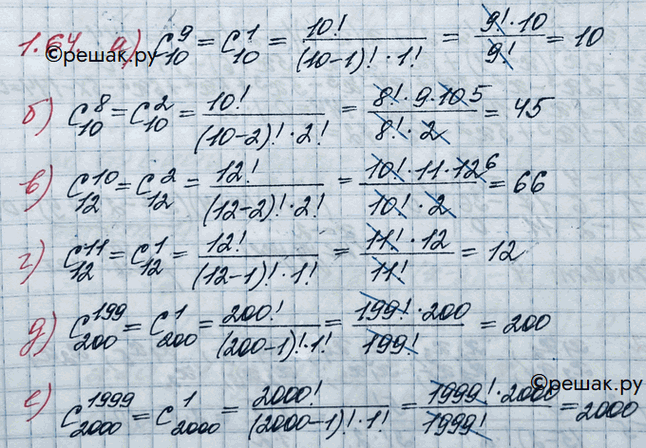 1.64. а) C₁₀⁹ = C₁₀¹ = 10! / (10-1)! · 1! = 9! · 10 / 9! = 10
©решак.ру
б) C₁₀⁸ = C₁₀² = 10! / (10-2)! · 2! = 8! · 9 · 10 5 / 8! · 2 = 45
в) C₁₂¹⁰ = C₁₂² = 12! / (12-2)! · 2! = 10! · 11 · 12 6 / 10! · 2 = 66
г) C₁₂¹¹ = C₁₂¹ = 12! / (12-1)! · 1! = 11! · 12 / 11! = 12
д) C₂₀₀¹⁹⁹ = C₂₀₀¹ = 200! / (200-1)! · 1! = 199! · 200 / 199! = 200
©решак.ру
е) C₂₀₀₀¹⁹⁹⁹ = C₂₀₀₀¹ = 2000! / (2000-1)! · 1! = 1999! · 2000 / 1999! = 2000